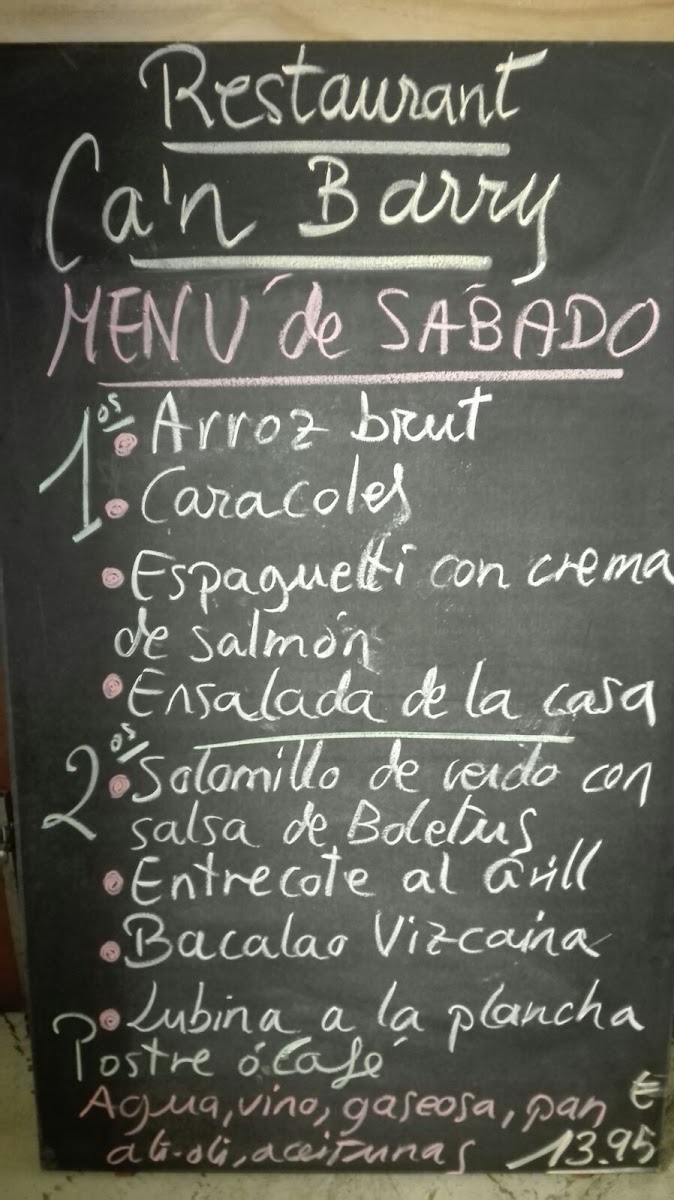 Restaurant
Ca'n Barry
MENÚ de SÁBADO
1os Arroz brut
Caracoles
Espaguetti con crema
de salmón
Ensalada de la casa
2os Solomillo de cerdo con
salsa de Boletus
Entrecote al Grill
Bacalao Vizcaina
Lubina a la plancha
Postre ó Café
Agua, vino, gaseosa, pan €
ali-oli, aceitunas 13.95